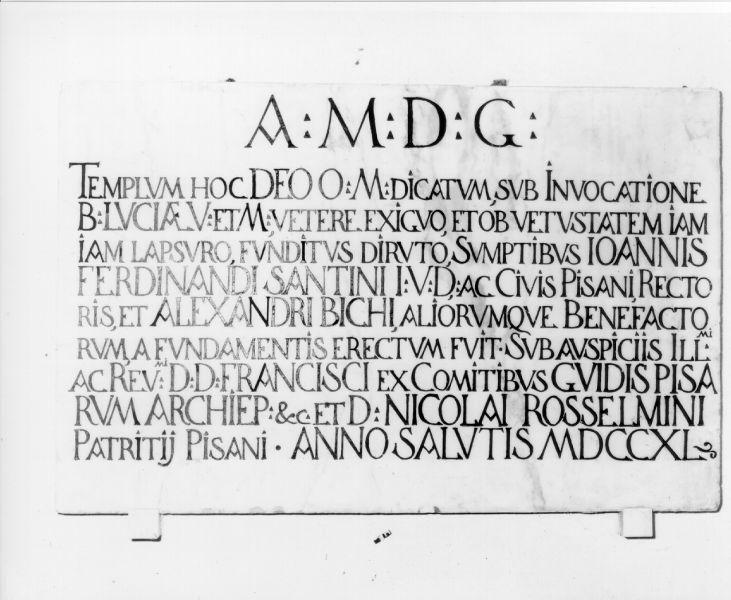 A:M:D:G:
TEMPLVM HOC DEO O:M:DICATVM, SVB INVOCATIONE
B:LVCIÆ V:ET M:, VETERE EXIGVO, ET OB VETVSTATEM IAM
IAM LAPSVRO, FVNDITVS DIRVTO, SVMPTIBVS IOANNIS
FERDINANDI SANTINI I:V:D:, AC CIVIS PISANI, RECTO
RIS, ET ALEXANDRI BICHI, ALIORVMQVE BENEFACTO
RVM, A FVNDAMENTIS ERECTVM FVIT. SVB AVSPICIIS ILL:MI
AC REV:MI D:D:FRANCISCI EX COMITIBVS GVIDIS PISA
RVM ARCHIEP:&c:ET D:NICOLAI ROSSELMINI
PATRITIJ PISANI · ANNO SALVTIS MDCCXL